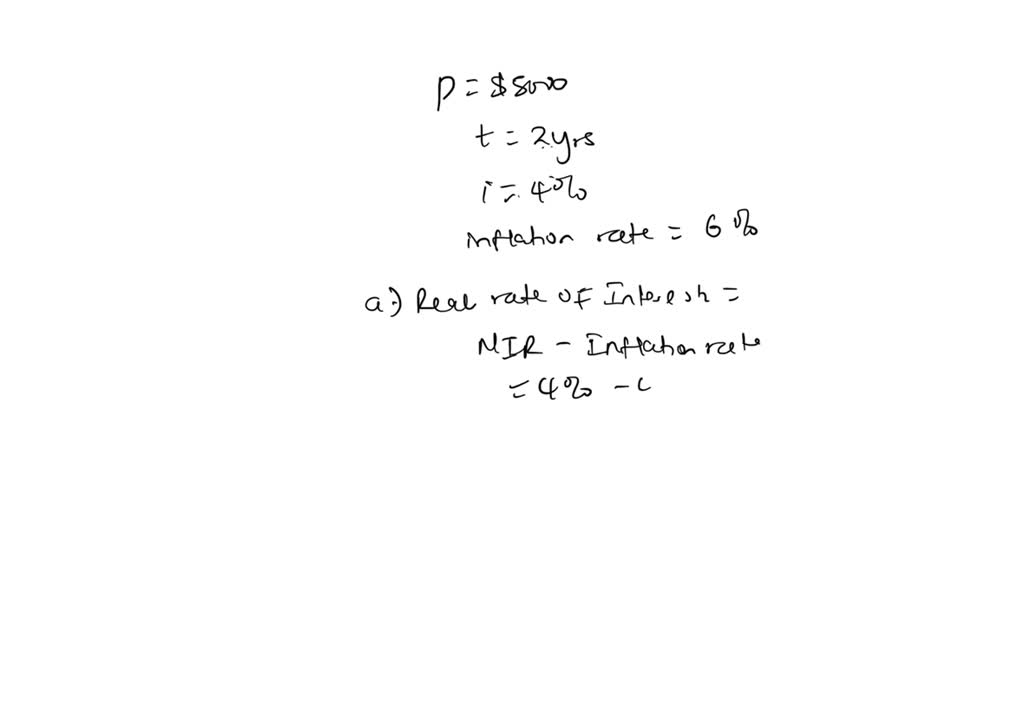 P = $5000
t = 2yrs
i = 4%
Inflation rate = 6%
a.) Real rate of Interest =
NIR - Inflation rate
= 4% -